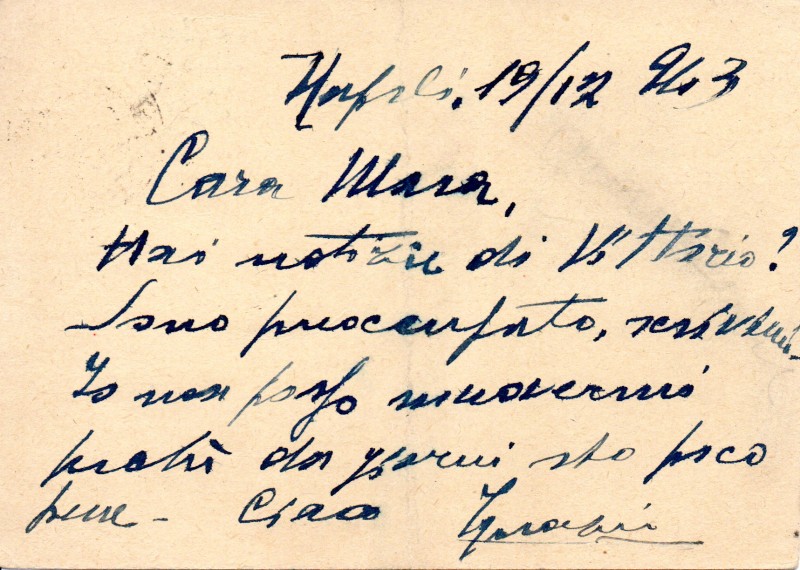 Napoli, 19/12 943
Cara Mara,
Hai notizie di Vittorio?
Sono preoccupato, scrivimi -
Io non posso muovermi
perchè da giorni sto poco
bene - Ciao